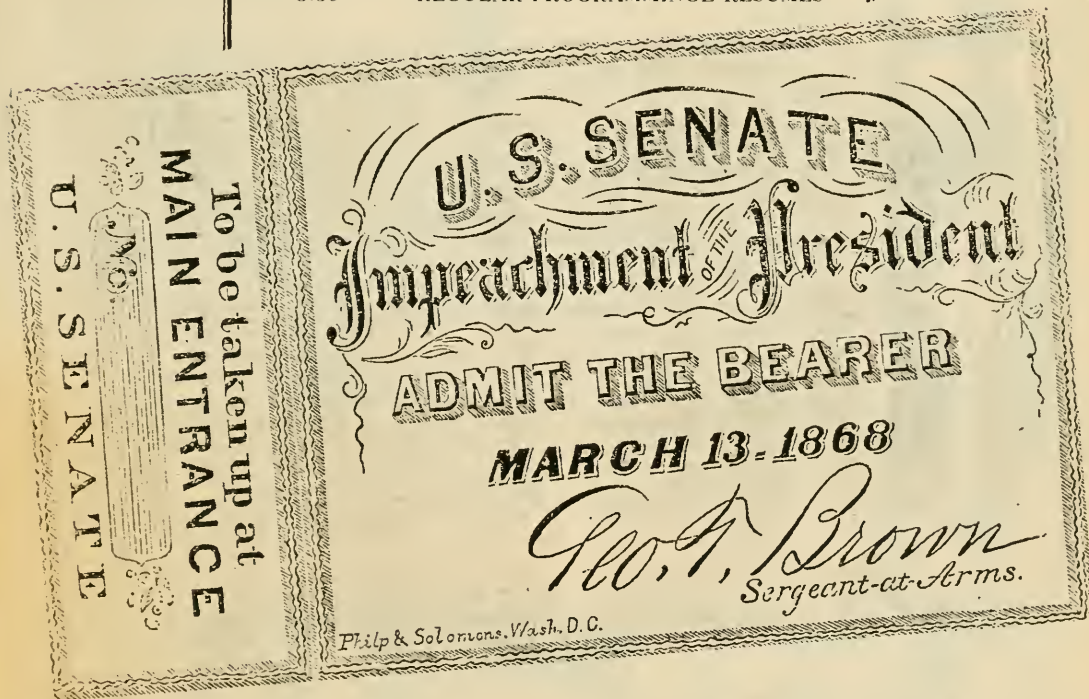 REGULAR PROGRAM
RESUMES
To be taken up at
MAIN ENTRANCE
No.
U.S. SENATE
U.S. SENATE
Impeachment OF THE President
ADMIT THE BEARER
MARCH 13-1868
Geo. T. Brown
Sergeant-at-Arms.
Philp & Solomons, Wash, D.C.